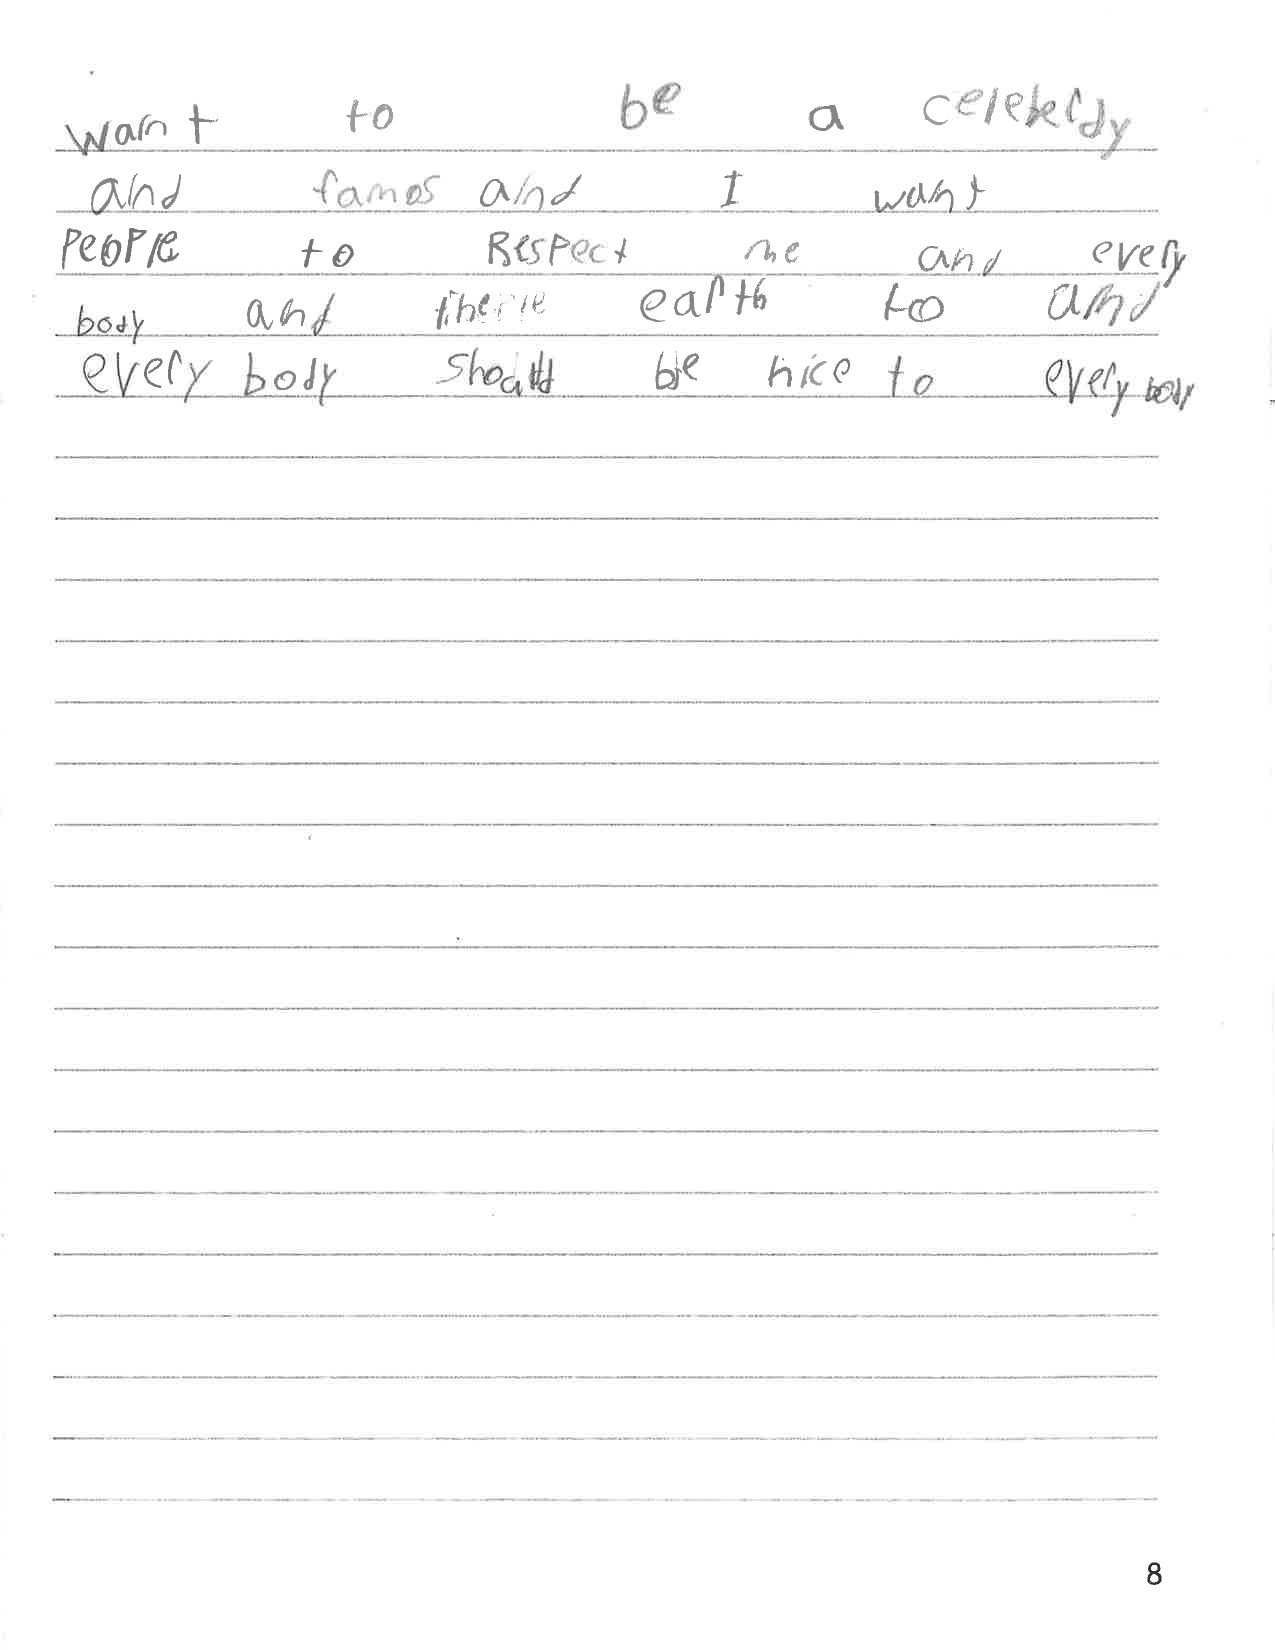 want to be a celeberdy
and famos and I want
People to Respect me and every
body and therie earth to and
every body should be nice to every body
8